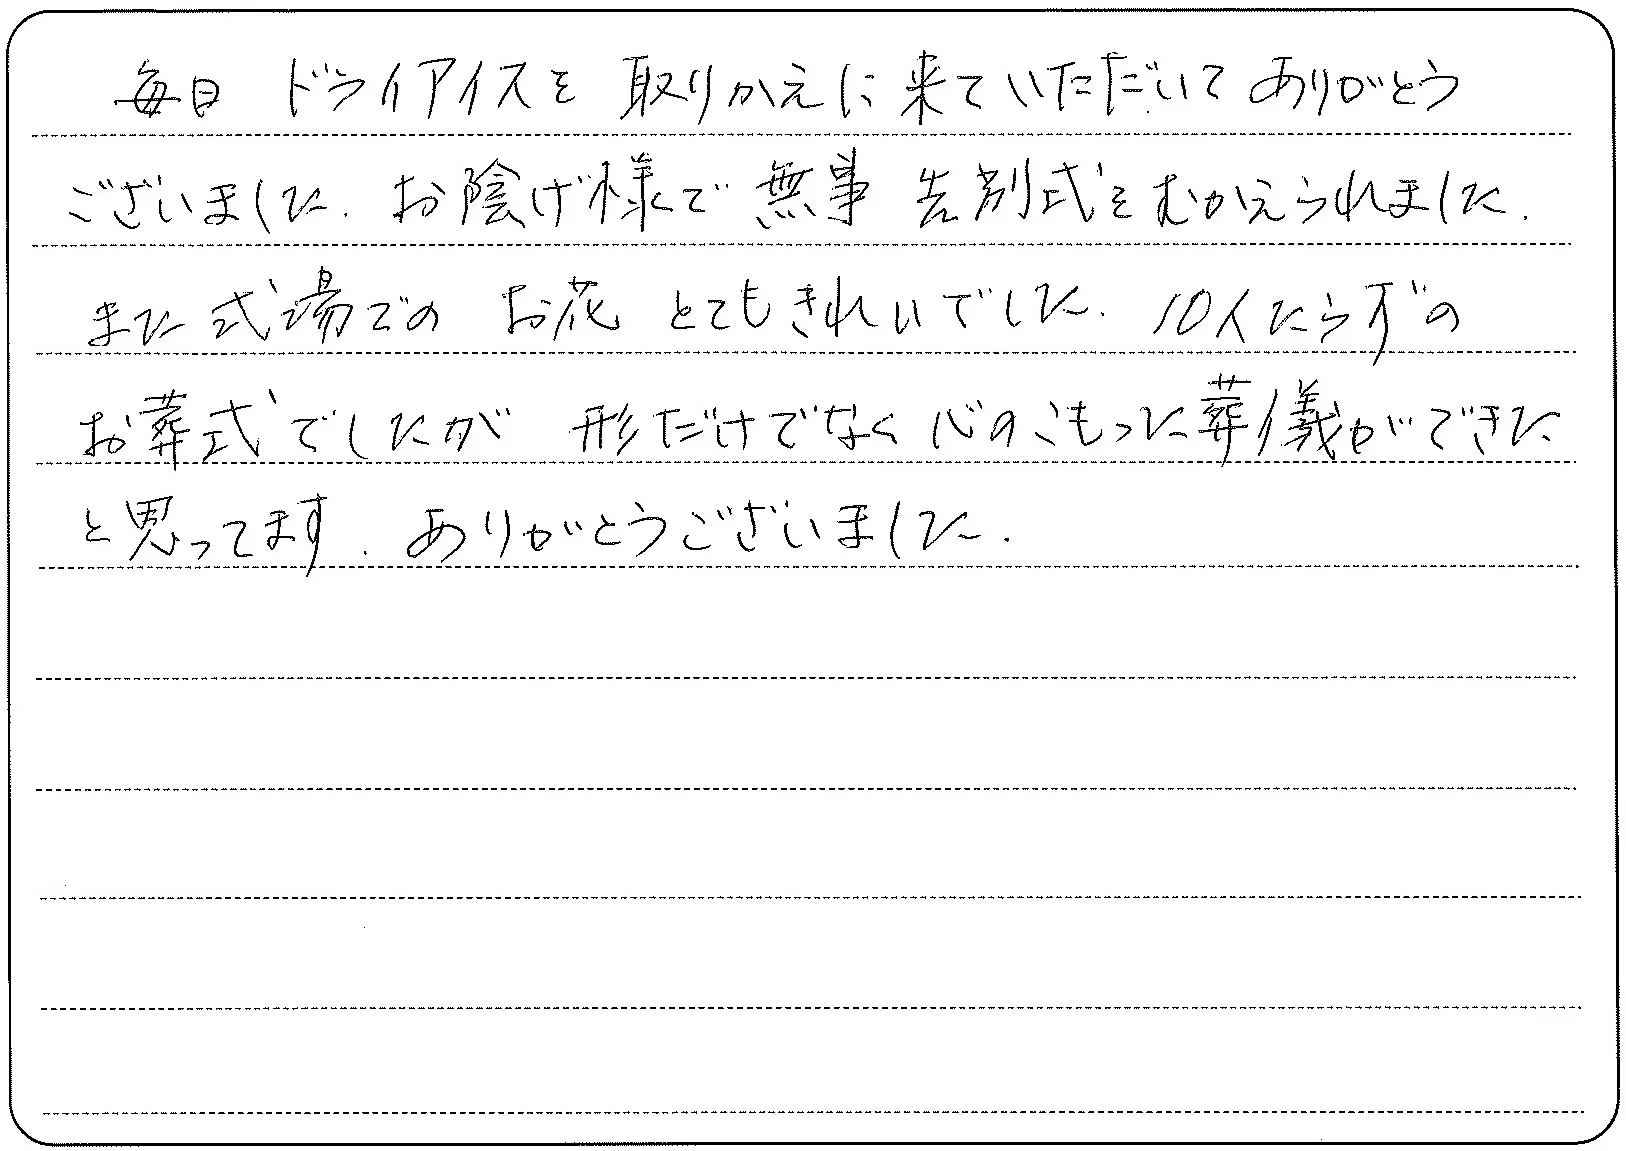 毎日 ドライアイスを 取りかえに来ていただいて ありがとう
ございました. お陰げ様で 無事 告別式をむかえられました.
また 式場での お花 とてもきれいでした. 10人たらずの
お葬式でしたが 形だけでなく 心のこもった葬儀ができた
と思ってます. ありがとうございました.